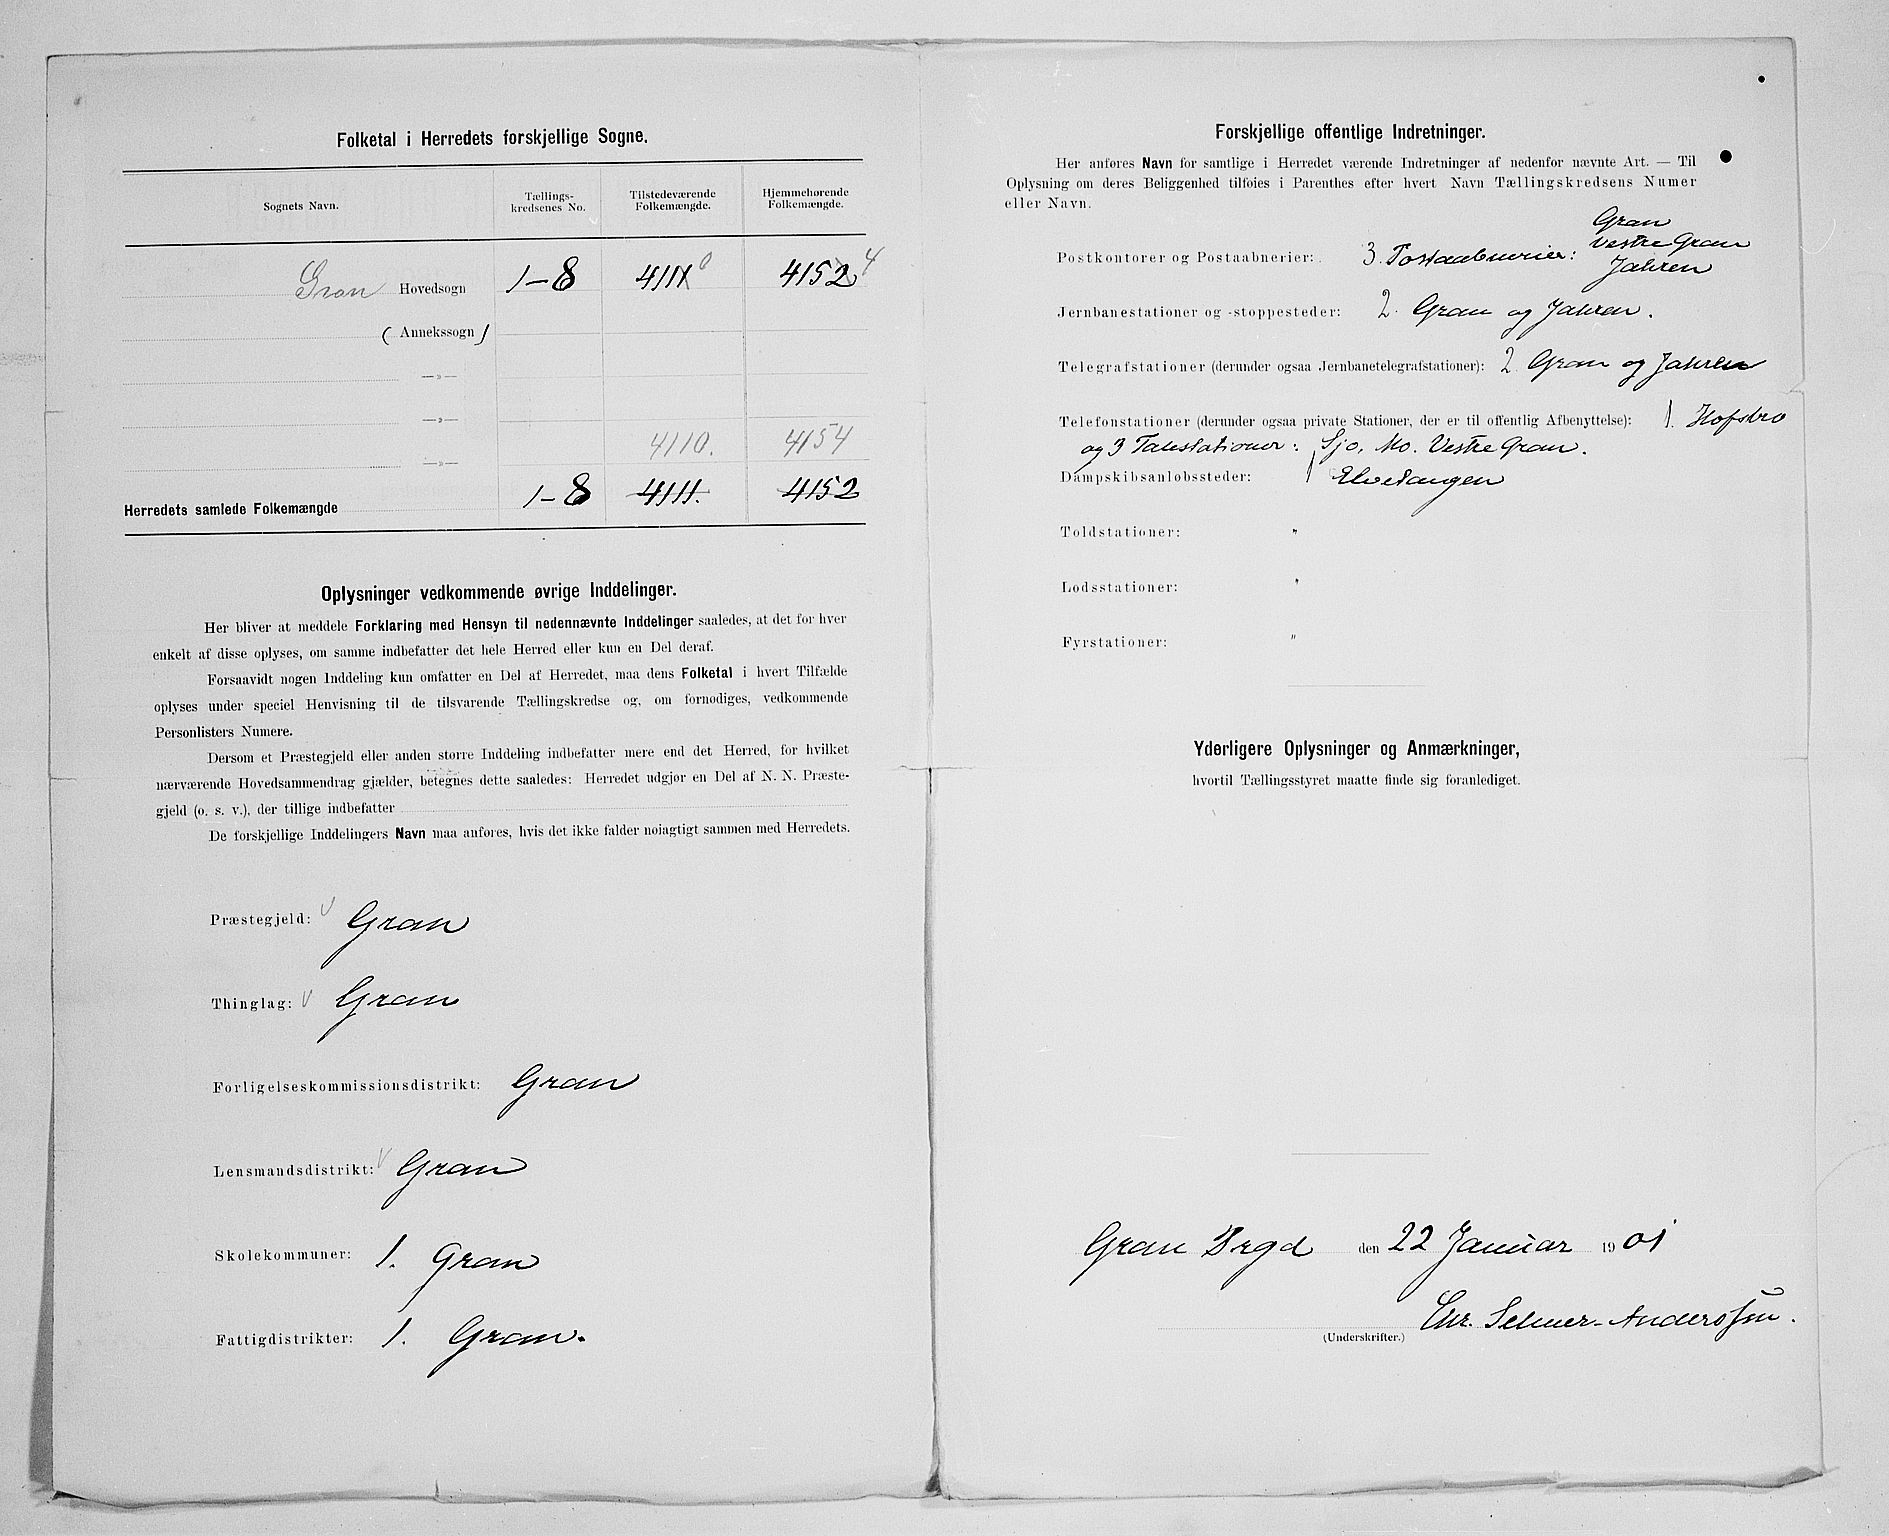 Folketal i Herredets forskjellige Sogne.
Sognets Navn.
Tællings-
kredsenes No.
Tilstedeværende
Folkemængde.
Hjemmehørende
Folkemængde.
Gran Hovedsogn 1-8 4111 0 4152 4
( Annekssogn )
—»—
—»—
4110. 4154
—»—
Herredets samlede Folkemængde 1-8 4111. 4152
Oplysninger vedkommende øvrige Inddelinger.
Her bliver at meddele Forklaring med Hensyn til nedennævnte Inddelinger saaledes, at det for hver
enkelt af disse oplyses, om samme indbefatter det hele Herred eller kun en Del deraf.
Forsaavidt nogen Inddeling kun omfatter en Del af Herredet, maa dens Folketal i hvert Tilfælde
oplyses under speciel Henvisning til de tilsvarende Tællingskredse og, om fornødiges, vedkommende
Personlisters Numere.
Dersom et Præstegjeld eller anden større Inddeling indbefatter mere end det Herred, for hvilket
nærværende Hovedsammendrag gjælder, betegnes dette saaledes: Herredet udgjør en Del af N. N. Præste-
gjeld (o. s. v.), der tillige indbefatter
De forskjellige Inddelingers Navn maa anføres, hvis det ikke falder nøiagtigt sammen med Herredets.
Præstegjeld: Gran
Thinglag: Gran
Forligelseskommissionsdistrikt: Gran
Lensmandsdistrikt: Gran
Skolekommuner: 1. Gran
Fattigdistrikter: 1. Gran.
Forskjellige offentlige Indretninger.
Her anføres Navn for samtlige i Herredet værende Indretninger af nedenfor nævnte Art. — Til
Oplysning om deres Beliggenhed tilføies i Parenthes efter hvert Navn Tællingskredsens Numer
eller Navn.
Gran
Vestre Gran
Postkontorer og Postaabnerier: 3. Postaabnerier:
Jahren
Jernbanestationer og -stoppesteder: 2. Gran og Jahren.
Telegrafstationer (derunder ogsaa Jernbanetelegrafstationer): 2. Gran og Jahren
Telefonstationer (derunder ogsaa private Stationer, der er til offentlig Afbenyttelse): 1. Hofsbro
og 3 Talestationer: Sjo, Mo. Vestre Gran.
Dampskibsanløbssteder: 1 Elvetangen
Toldstationer: "
Lodsstationer: "
Fyrstationer: "
Yderligere Oplysninger og Anmærkninger,
hvortil Tællingsstyret maatte finde sig foranlediget.
Gran Prgd den 22 Januar 1901
Chr. Selmer-Anderssen.
(Underskrifter.)